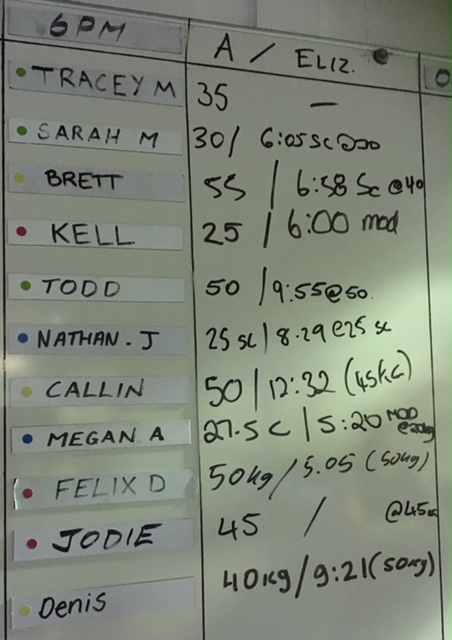 6PM A / ELIZ.
TRACEY M 35 —
SARAH M 30 / 6:05 sc @20
BRETT 55 / 6:58 Sc @40
KELL 25 / 6:00 mod
TODD 50 / 9:55@50.
NATHAN. J 25 sc | 8.29 @25 sc
CALLIN 50 | 12:32 (45KG)
MEGAN A 27.5 C | 5:20 MOD
FELIX D 50kg / 5.05 (50kg)
JODIE 45 / @45
Denis 40kg / 9:21 (50kg)